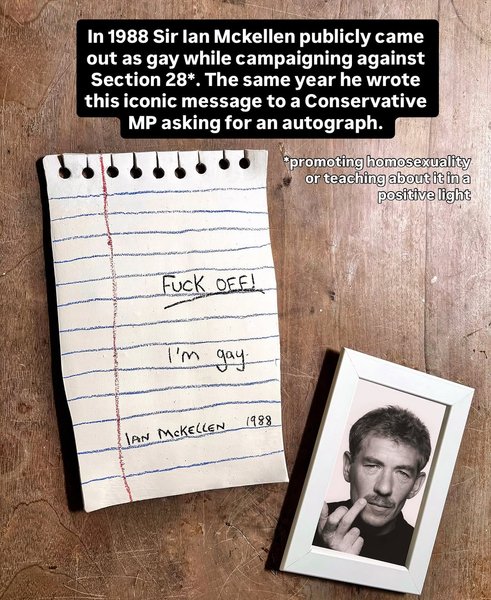 In 1988 Sir Ian Mckellen publicly came
out as gay while campaigning against
Section 28*. The same year he wrote
this iconic message to a Conservative
MP asking for an autograph.
*promoting homosexuality
or teaching about it in a
positive light
FUCK OFF!
I'm gay.
IAN McKELLEN 1988